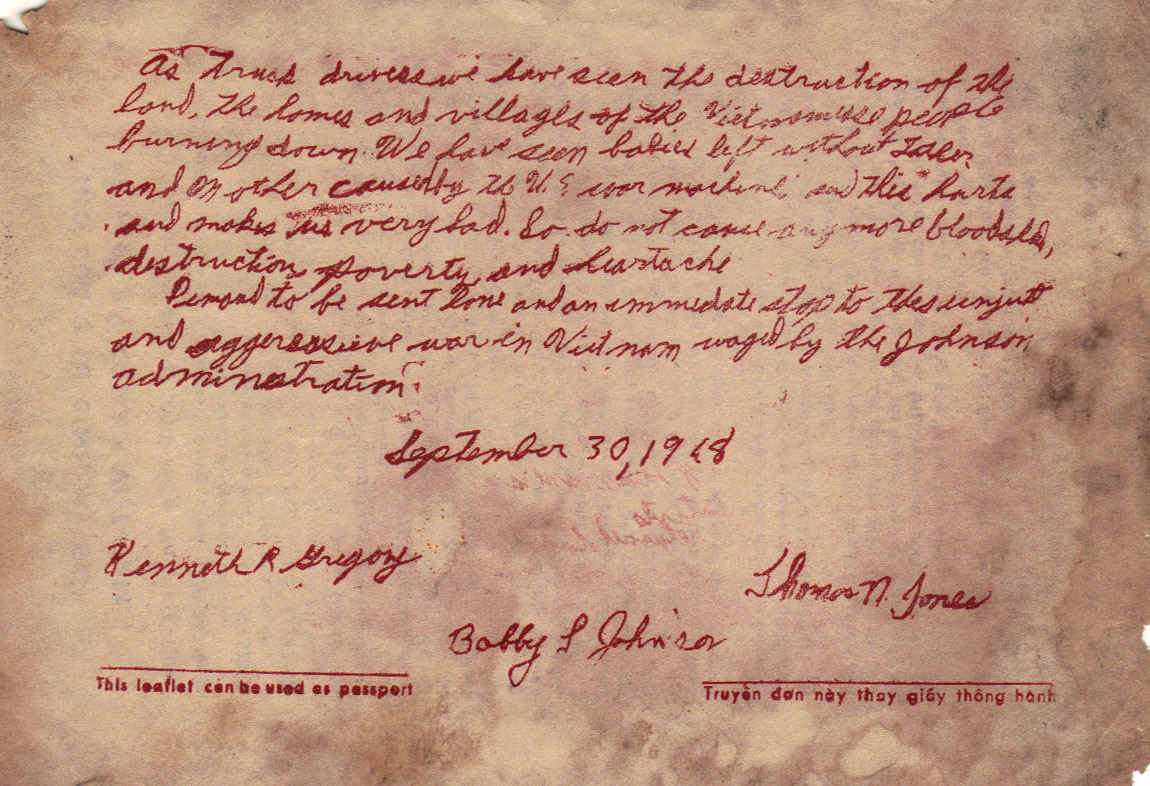 As truck drivers we have seen the destruction of the
land, the homes and villages of the Vietnamese people
burning down. We have seen babies left without
and Mother caused by the U.S war machine, and this hurts
and makes us very sad. So do not cause any more bloodshed,
destruction, poverty, and heartache
Demand to be sent home and an immediate stop to this unjust
and aggressive war in Vietnam waged by the Johnson
administration.
September 30, 1968
Kenneth R Gregory
Thomas N. Jones
Bobby L Johnson
This leaflet can be used as passport
Truyền đơn này thay giấy thông hành